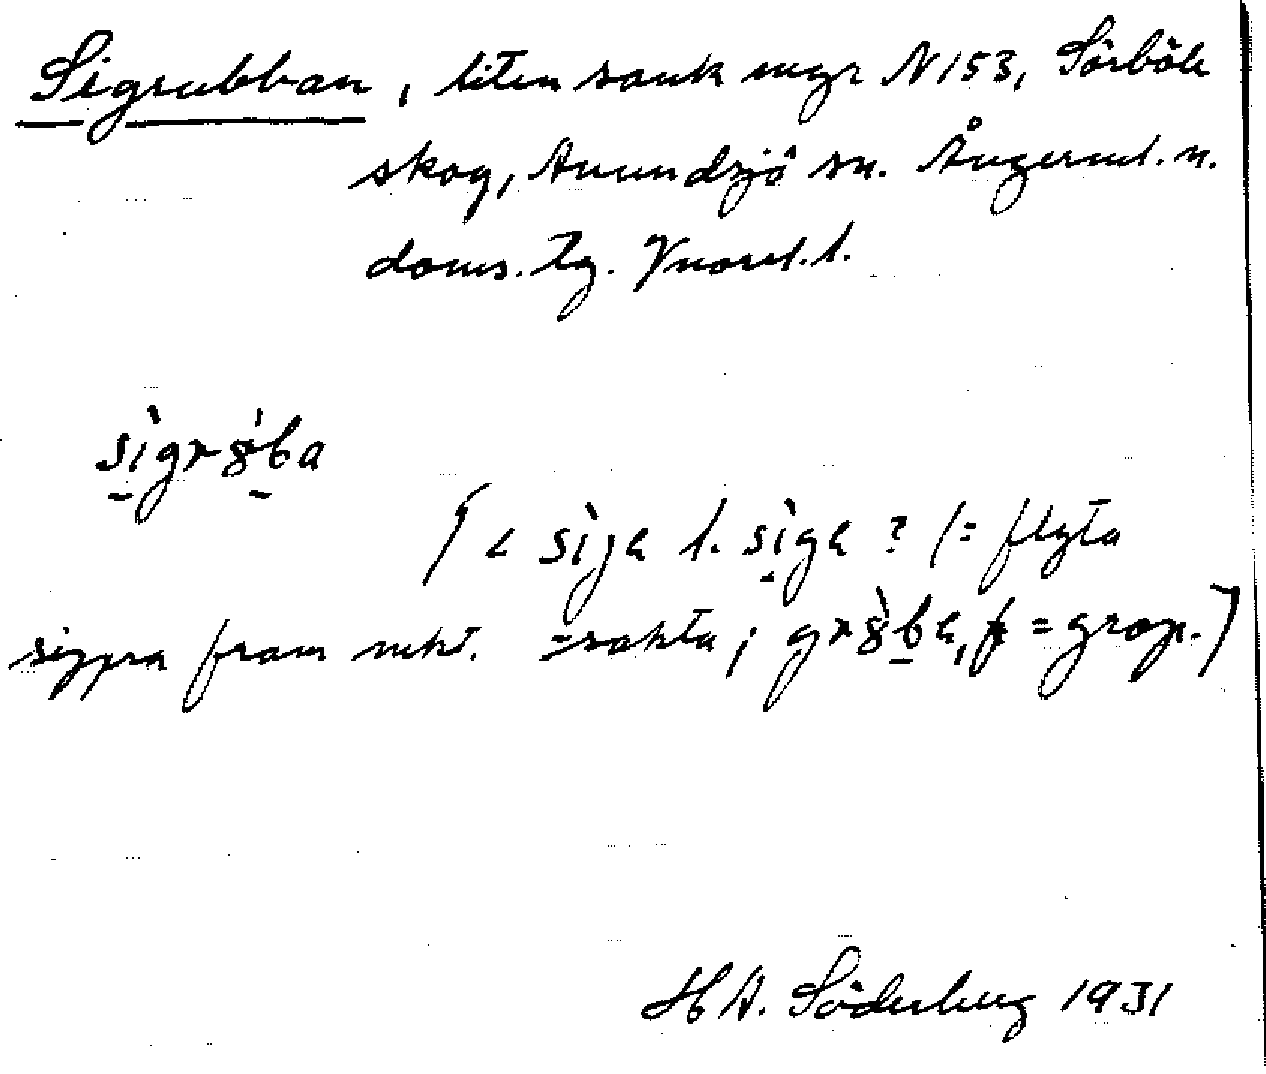 Sigrubban, liten sank myr N 153, Sörböle
skog, Anundsjö sn. Ångerml. n.
doms. Tg. Ynorl. l.
sìgr8̀ba
(< sìje l. sìge ? (= flyta
sippra fram mkt. =sakta; gr8̀be, f = grop.)
H A. Söderberg 1931